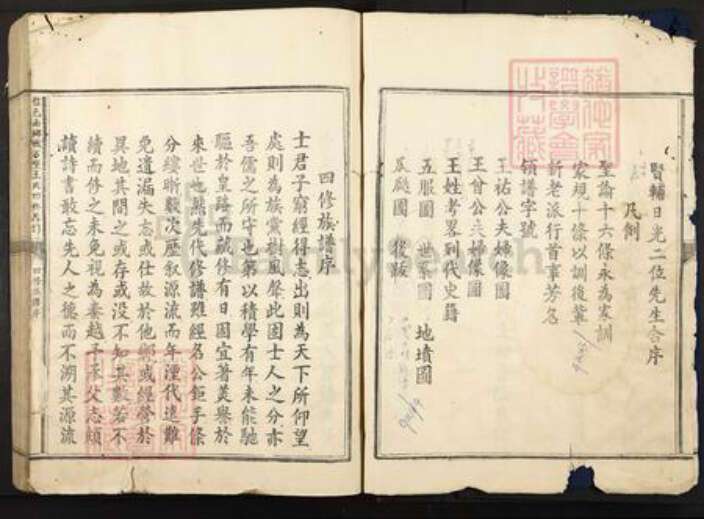 賢輔日光二位先生合序
凡例
聖諭十六條永為家訓
家規十條以訓後輩
新老派行首事芳名
領譜字號
王祐公夫婦像圖
王曾公夫婦像圖
王姓考畧列代史籍
五服圖 世系圖 地墳圖
瓜瓞圖 後跋
四修族譜序
士君子窮經得志出則為天下所仰望
處則為族黨樹風聲此固士人之分亦
吾儒之所守也第以積學有年未能馳
驅於皇路而藏修有日固宜著美譽於
來世也然先代修譜雖經名公鉅手條
分縷晰毅次歷叙源流而年湮代遠難
免遺漏失志或仕故於他鄉或經營於
異地其間之或存或沒不知其數若不
續而修之未免視為秦越乎承父志頗
讀詩書敢忘先人之德而不溯其源流
四修族譜序
FamilySearch